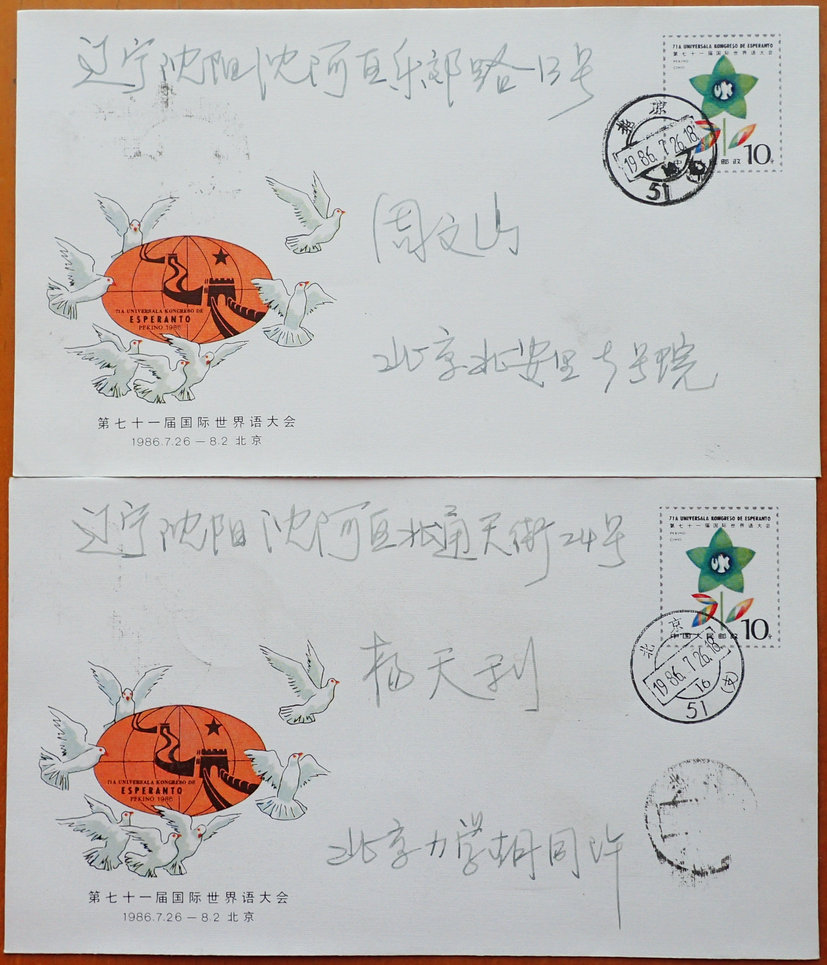 辽宁沈阳沈河区乐郊路13号
71A UNIVERSALA KONGRESO DE ESPERANTO
第七十一届国际世界语大会
PEKINO
ĈINIO
10分
中国人民邮政
北京
1986.7.26.18
16
51
周文山
71A UNIVERSALA KONGRESO DE
ESPERANTO
PEKINO 1986
北京北安里5号院
第七十一届国际世界语大会
1986.7.26－8.2 北京
辽宁沈阳沈河区北通天街24号
71A UNIVERSALA KONGRESO DE ESPERANTO
第七十一届国际世界语大会
PEKINO
ĈINIO
中国人民邮政
10分
北京
1986.7.26.18
16
51 (支)
杨天利
71A UNIVERSALA KONGRESO DE
ESPERANTO
PEKINO 1986
北京力学胡同许
第七十一届国际世界语大会
1986.7.26－8.2 北京